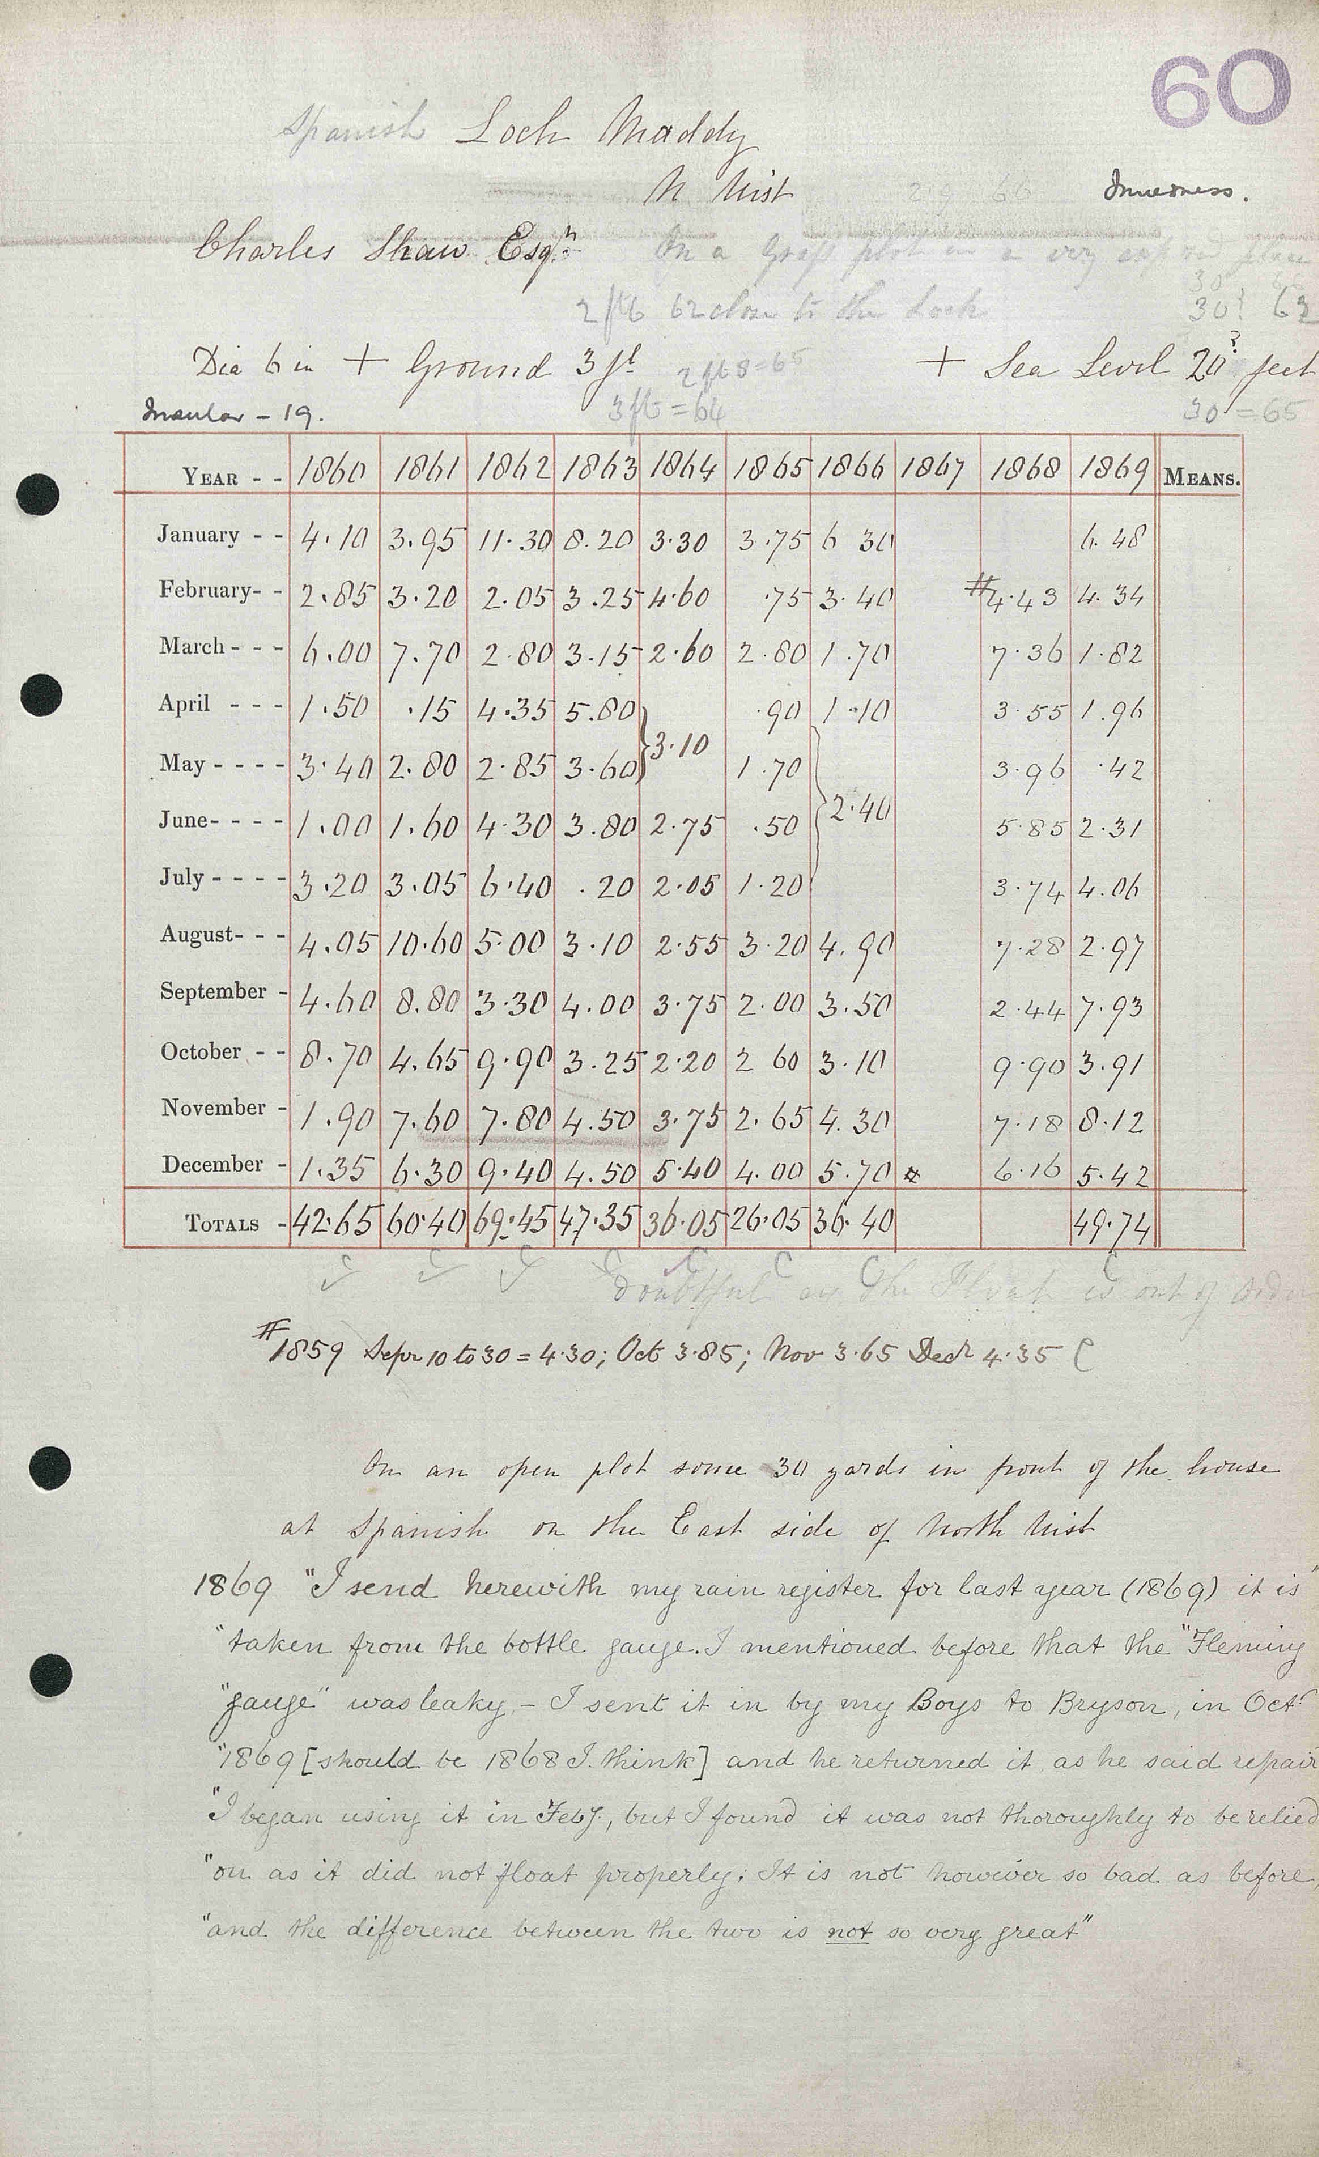 60
Spanish Loch Maddy
N Uist
Inverness.
Charles Shaw Esqr. On a Grass plot in a very place
2 ft 6 62 close to the Loch 30 62
Dia 6 in + Ground 3 ft 2 ft 8 = 65 + Sea Level 20? feet
Insular - 19. 3 ft = 64 30 = 65
YEAR - - 1860 1861 1862 1863 1864 1865 1866 1867 1868 1869 MEANS.
January - - 4.10 3.95 11.30 8.20 3.30 3.75 6 30 6.48
February- - 2.85 3.20 2.05 3.25 4.60 .75 3.40 #4.43 4.34
March - - - 6.00 7.70 2.80 3.15 2.60 2.80 1.70 7.36 1.82
April - - - 1.50 .15 4.35 5.80 .90 1.10 3.55 1.96
} 3.10
May - - - - 3.40 2.80 2.85 3.60 1.70 3.96 .42
} 2.40
June- - - - 1.00 1.60 4.30 3.80 2.75 .50 5.85 2.31
July - - - - 3.20 3.05 6.40 .20 2.05 1.20 3.74 4.06
August- - - 4.05 10.60 5.00 3.10 2.55 3.20 4.90 7.28 2.97
September - 4.60 8.80 3.30 4.00 3.75 2.00 3.50 2.44 7.93
October - - 8.70 4.65 9.90 3.25 2.20 2 60 3.10 9.90 3.91
November - 1.90 7.60 7.80 4.50 3.75 2.65 4.30 7.18 8.12
December - 1.35 6.30 9.40 4.50 5.40 4.00 5.70 # 6.16 5.42
TOTALS - 42.65 60.40 69.45 47.35 36.05 26.05 36.40 49.74
Doubtful as the Float is out of order
#1859 Sepr 10 to 30 = 4.30; Oct 3.85; Nov 3.65 Decr 4.35 C
On an open plot some 30 yards in front of the house
at Spanish on the East side of North Uist
1869 "I send herewith my rain register for last year (1869) it is"
"taken from the bottle gauge. I mentioned before that the "Fleming
"gauge" was leaky - I sent it in by my Boys to Bryson, in Octr
"1869 [should be 1868 I think] and he returned it as he said repair
"I began using it in Feby., but I found it was not thoroughly to be relied
"on as it did not float properly. It is not however so bad as before,
"and the difference between the two is not so very great"